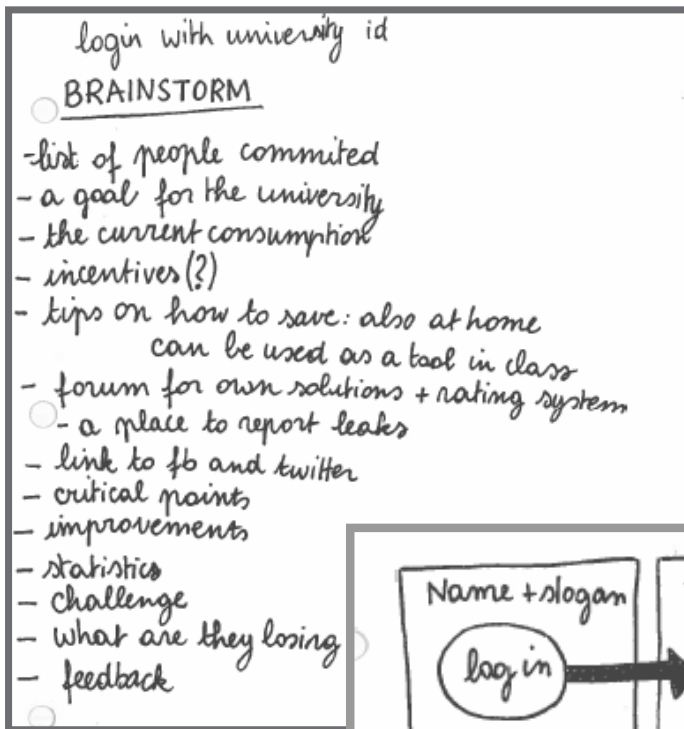 login with university id
BRAINSTORM
-list of people commited
- a goal for the university
- the current consumption
- incentives (?)
- tips on how to save: also at home
can be used as a tool in class
- forum for own solutions + rating system
- a place to report leaks
- link to fb and twitter
- critical points
- improvements
- statistics
- challenge
- what are they losing
- feedback
Name + slogan
log in